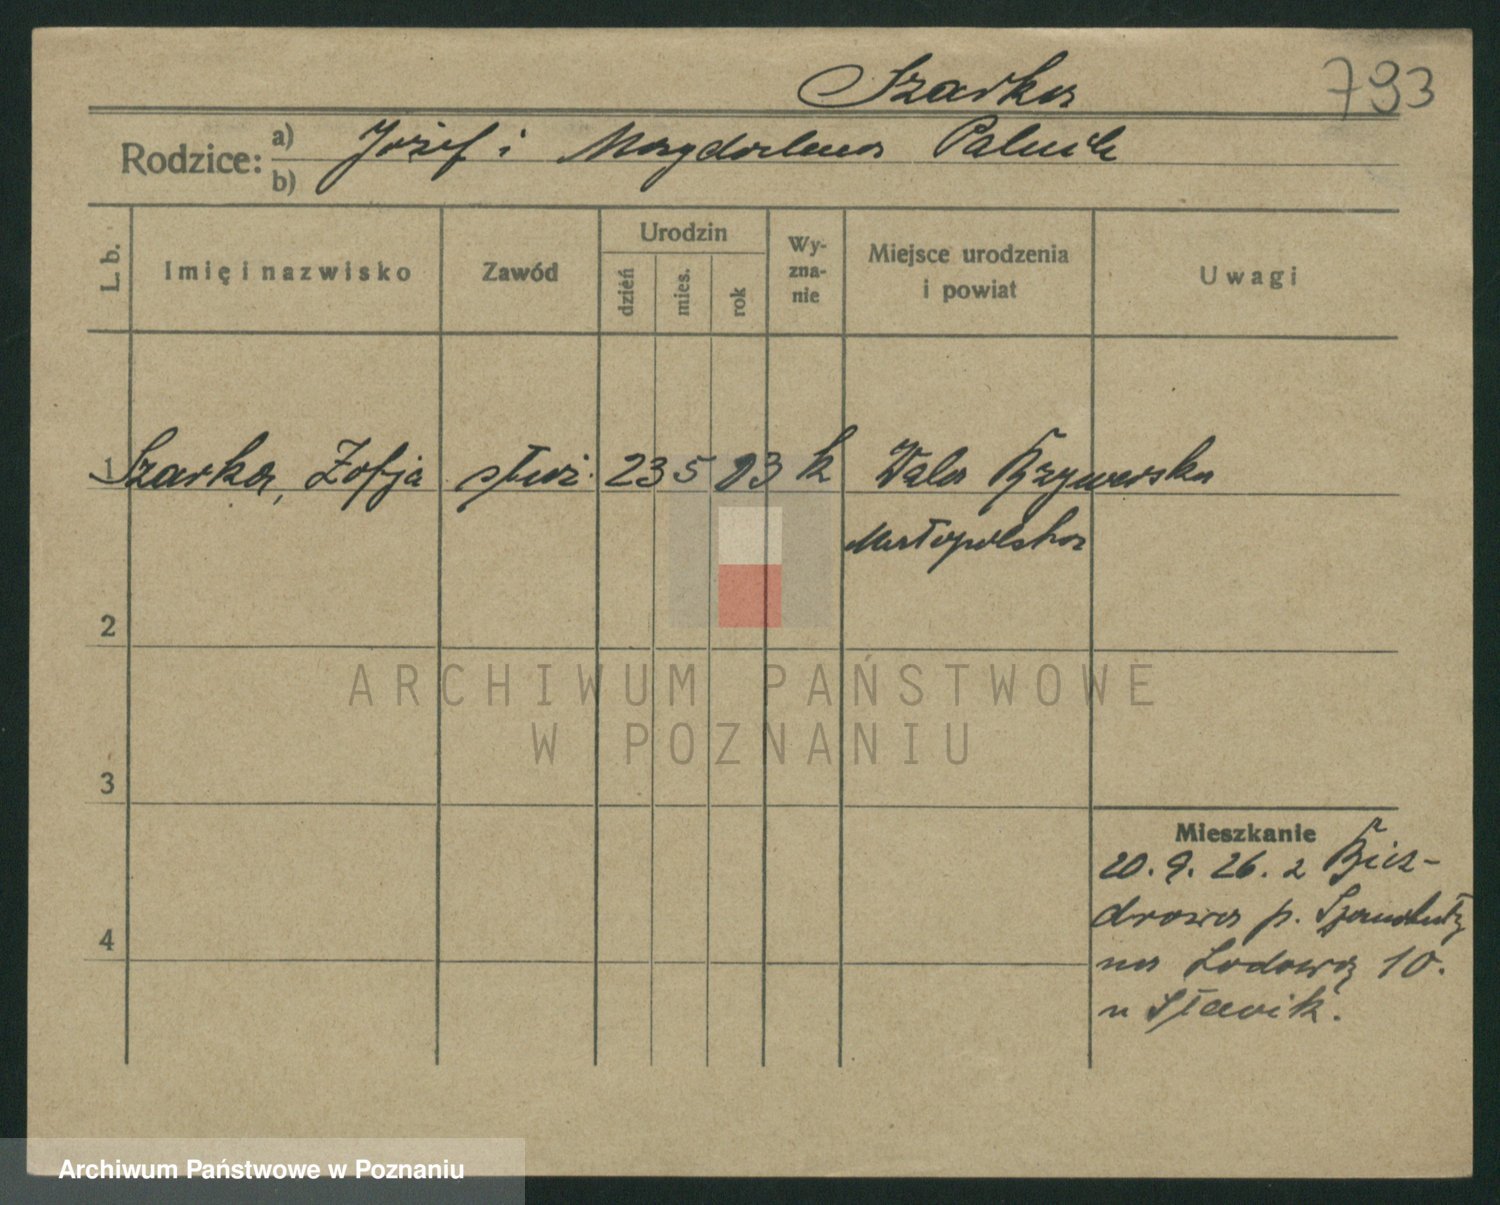 Szarka
793
Rodzice: a) Józef i Magdalena Paluch
b)
L. b.
Imię i nazwisko
Zawód
Urodzin
dzień
mies.
rok
Wy-
zna-
nie
Miejsce urodzenia
i powiat
Uwagi
1 Szarka, Zofja służ. 23 5 03 k Wola Krzywecka
Małopolska
2
3
4
Mieszkanie
20. 9. 26. z
p.
na Lodową 10.
u
ARCHIWUM PAŃSTWOWE
W POZNANIU
Archiwum Państwowe w Poznaniu